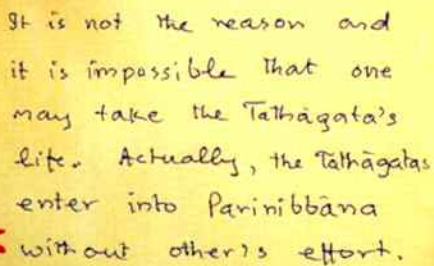 It is not the reason and
it is impossible that one
may take the Tathāgata's
life. Actually, the Tathāgatas
enter into Parinibbāna
without other's effort.